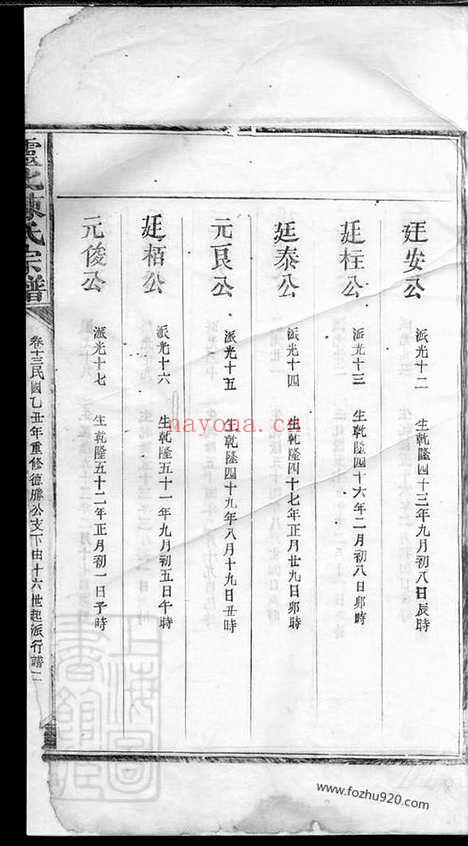 廷安公 派光十二 生乾隆四十三年九月初八日辰時
廷柱公 派光十三 生乾隆四十六年二月初八日卯時
廷泰公 派光十四 生乾隆四十七年正月廿九日卯時
元良公 派光十五 生乾隆四十九年八月十九日丑時
廷栢公 派光十六 生乾隆五十一年九月初五日午時
元俊公 派光十七 生乾隆五十二年正月初一日子時
陳氏宗譜
卷十三民國乙丑年重修德勝公支下由十六世起派行譜二
nayona.cn
www.fozhu920.com